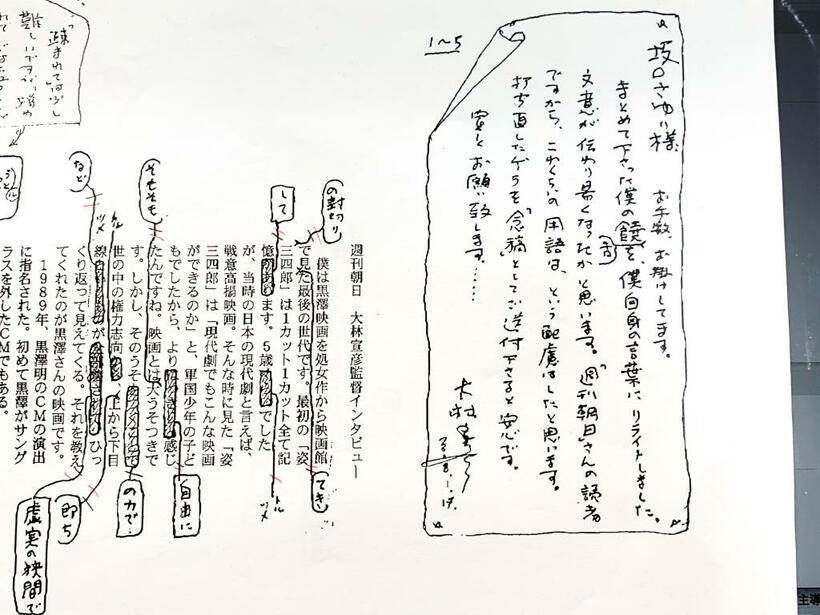 坂口さゆり様。 お手数、お掛けしてます。
まとめて下さった僕の饒舌を、僕自身の言葉に、リライトしました。
文意が伝わり易くなったかと思います。「週刊朝日」さんの読者
ですから、これくらいの用語は、という配慮はしたと思います。
打ち直したゲラを「念稿」としてご送付下さると安心です。
お願い致します……
1〜5
週刊朝日 大林宣彦監督インタビュー
の封切り
僕は黒澤映画を処女作から映画館
てき
で見た最後の世代です。最初の「姿
三四郎」は1カット1カット全て記
して
憶 ます。5歳 でした
トルツメ
が、当時の日本の現代劇と言えば、
戦意高揚映画。そんな時に見た「姿
三四郎」は「現代劇でもこんな映画
ができるのか」と、軍国少年の子ど
もでしたから、より 感じ
自由に
そもそも
たんですね。映画とは大うそつきで
す。しかし、そのうそ
の力で…
世の中の権力志向 、上から下目
トルツメ
など
線 が ひっ
即ち
くり返って見えてくる。それを教え
虚実の狭間で
てくれたのが黒澤さんの映画です。
1989年、黒澤明のCMの演出
に指名された。初めて黒澤がサング
ラスを外したCMでもある。
主導